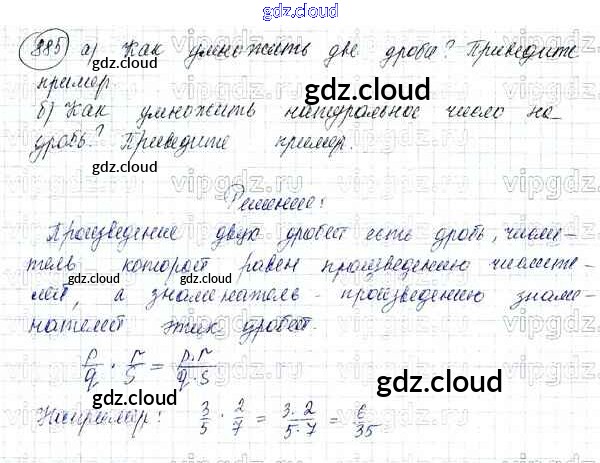 gdz.cloud
885 а) Как умножить две дроби? Приведите
gdz.cloud gdz.cloud
пример.
б) Как умножить натуральное число на
дробь? Приведите пример.
gdz.cloud gdz.cloud
Решение:
Произведение двух дробей есть дробь, числи-
тель которой равен произведению числите-
gdz.cloud gdz.cloud
лей, а знаменатель - произведению знаме-
нателей этих дробей.
p/q · r/s = p·r/q·s
gdz.cloud
Например: 3/5 · 2/7 = 3·2/5·7 = 6/35
gdz.cloud